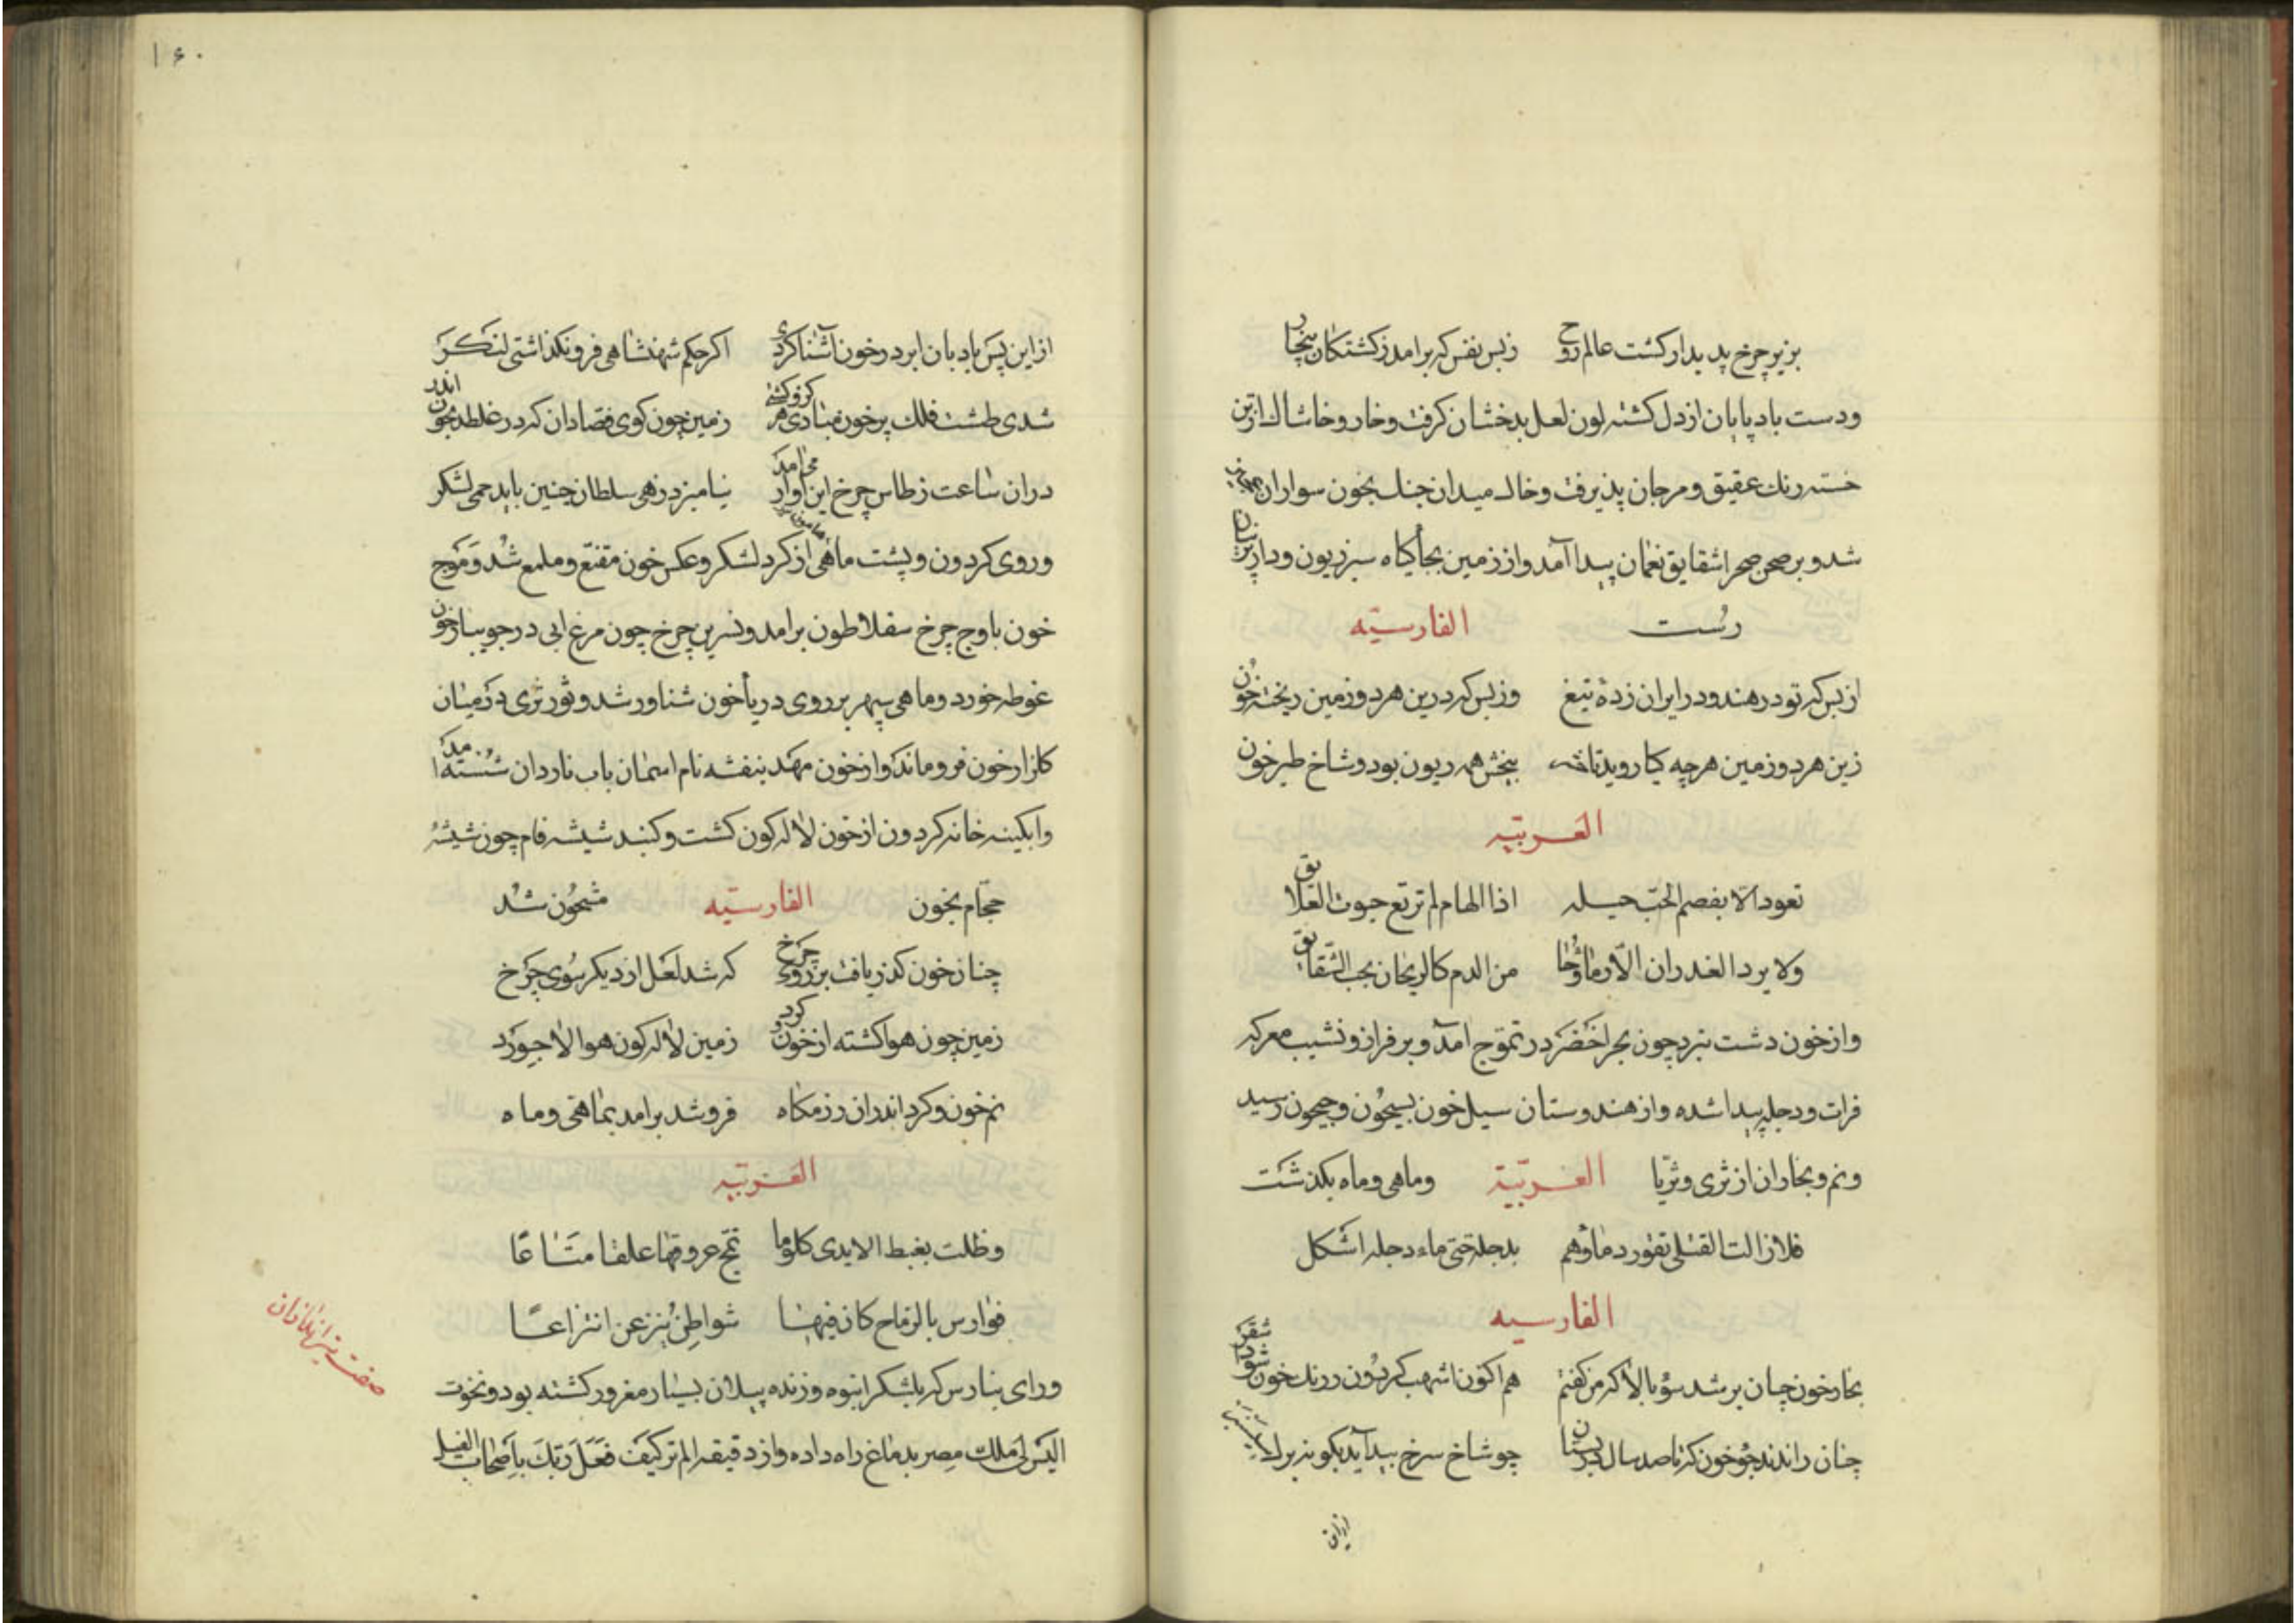 بزیر چرخ پدیدار کشت عالم روح زبس نفس که برامد ز کشتکان بیجا
ودست باد پایان از دل کشته لون لعل بدخشان کرفت وخار وخاشاک از تن
خسته رنک عقیق ومرجان پذیرفت وخاک میدان جنک بخون سواران
شد وبر صحن صحرا شقایق نعمان پیدا آمد واز زمین بجأ کیاه سبز ریون ودار پرنیان
رُست الفارسیّه
از بس که تو در هند ودر ایران زدهٔ تیغ وز بس که درین هر دو زمین ریخته خون
زین هر دو زمین هرچه کیا روید تا بیخش همه ریون بود وشاخ طبر خون
العربیّه
تعود الّا بفصم الحبّ خیله اذا الهام لم ترتع جیوب العلایق
ولا یرد الغدران الّا وماؤها من الدم کالریحان تحت الشّقایق
واز خون دشت نبرد چون بحر اخضر در تموّج آمد وبر فراز ونشیب معرکه
فرات ودجله پیدا شده واز هندوستان سیل خون بسیحون وجیحون رسید
ونم وبخار ان از ثری وثریّا العربیّة وماهی وماه بکذشت
فلا زالت القتلی تفور دماؤهم بدجلة حتی ماء دجله اشکل
الفارسیه
بخار خون چنان بر شد سؤ بالا که من کفتم هم اکنون اشهب کردون زرنک خون شود اشقر
چنان راندند جؤ خون که تا صد سال در بستان چو شاخ سرخ بید آید بکونه برک
ازان
۱۶۰
از این پس بادبان ابر در خون آشنا کردی اکر حکم شهنشاهی فرو نکذاشتی لنکر
شدی طشت فلک پر خون زمین چون کوی فصادان که در غلطد بخون اندر
دران ساعت ز طاس چرخ این اواز می امد نیامیزد زهی سلطان چنین باید حمی لشکر
وروی کردون وپشت ماهی از کرد لشکر وعکس خون مقنّع وملمع شد وموج
خون باوج چرخ سقلاطون برامد ونسرین چرخ چون مرغ ابی در جویبار خون
غوطه خورد وماهی سپهر بر روی دریأ خون شناور شد وثور ثری در میان
کلزار خون فرو ماند واز خون مهد بنفشه نام اسمان باب ناردان شسته امد
وابکینه خانه کردون از خون لاله کون کشت وکنبد شیشه فام چون شیشهٔ
حجّام بخون الفارسیّه مشحون شد
چنان خون کذر یافت بر روی چرخ که شد لعل از دیکر سوی چرخ
زمین چون هوا کشته از خون وکرد زمین لاله کون هوا لاجورد
نم خون وکرد اندران رزمکاه فرو شد برامد بماهی وماه
العربیّه
وظلت بغبط الایدی کلوما تمج عروقها علقا متاعًا
فوارس بالرماح کان فیها شواطن ینتزعن انتزاعًا
ورای بنارس که بلشکر انبوه وزنده پیلان بسیار مغرور کشته بود ونخوت
الیس لی ملک مصر بدماغ راه داده واز دقیقه الم تر کیف فعل ربّک باصحاب الفیل
صفت